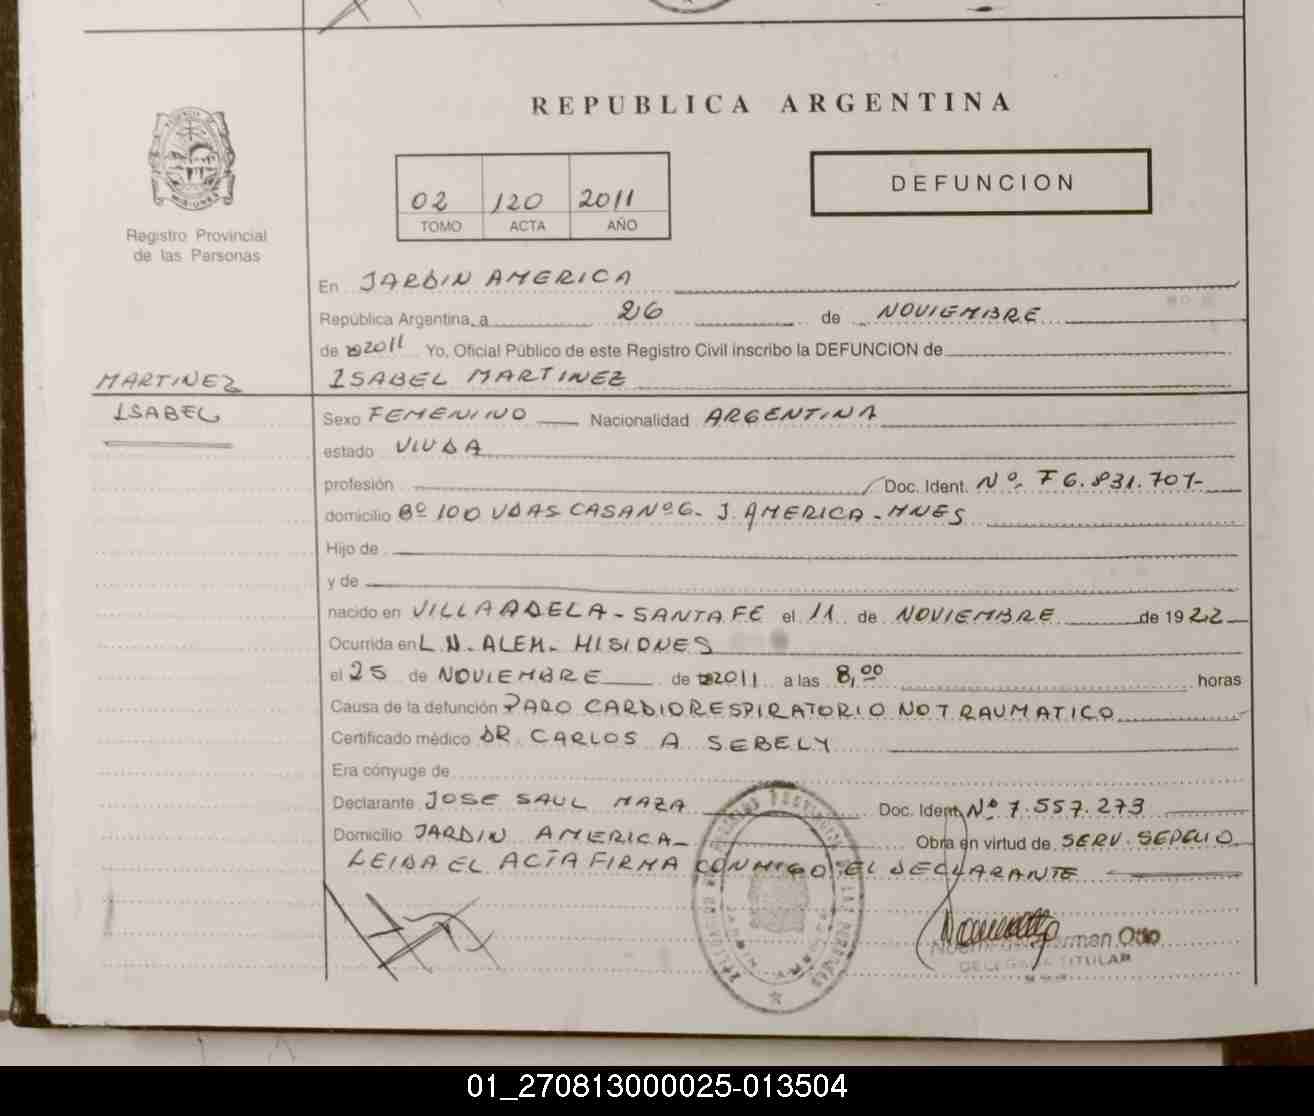 REPUBLICA ARGENTINA
MISIONES
Registro Provincial
de las Personas
02 120 2011
TOMO ACTA AÑO
DEFUNCION
En JARDIN AMERICA
República Argentina, a 26 de NOVIEMBRE
de 2011 Yo, Oficial Público de este Registro Civil inscribo la DEFUNCION de
MARTINEZ
ISABEL
ISABEL MARTINEZ
Sexo FEMENINO Nacionalidad ARGENTINA
estado VIUDA
profesión Doc. Ident. Nº F6.831.701-
domicilio Bº 100 VDAS CASA Nº 6- J. AMERICA - MNES
Hijo de
y de
nacido en VILLA ADELA - SANTA FE el 11 de NOVIEMBRE de 1922
Ocurrida en L.N. ALEM - MISIONES
el 25 de NOVIEMBRE de 2011 a las 8,00 horas
Causa de la defunción PARO CARDIORESPIRATORIO NO TRAUMATICO
Certificado médico DR. CARLOS A SEBELY
Era cónyuge de
Declarante JOSE SAUL MAZA Doc. Ident. Nº 7.557.273
Domicilio JARDIN AMERICA - Obra en virtud de SERV. SEPELIO
LEIDA EL ACTA FIRMA CONMIGO EL DECLARANTE
Otto
TITULAR
01_270813000025-013504